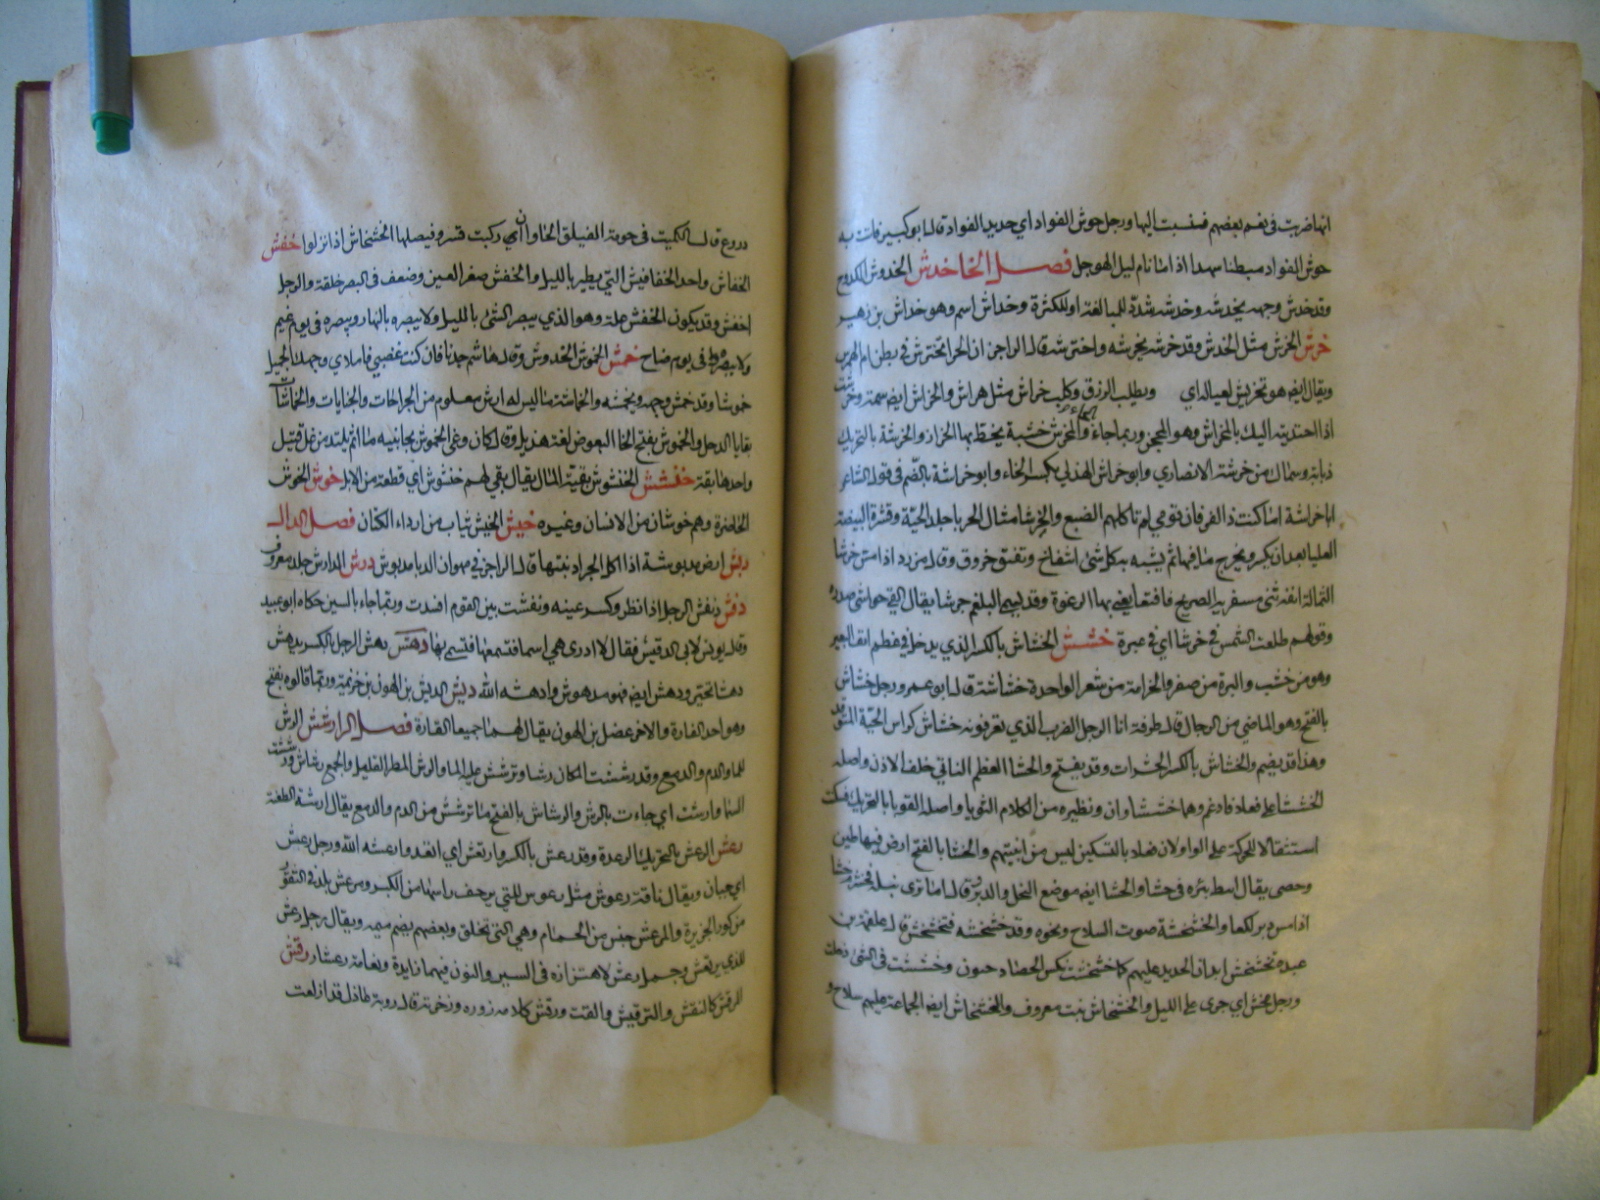 انها ضربت في نعم بعضهم فنسبت اليها ورجل حوش الفواد اي حديد الفواد قال ابو كبير فاتت به
حوش الفواد مبطنا سهدا اذا ما نام ليل الهوجل فصل الخا خدش الخدوش الكدوح
وقد خدش وجهه يخدشه وخدشه شدد للمبالغة او للكثرة وخداش اسم وهو خداش بن زهير
خرش الخرش مثل الخدش وقد خرشه يخرشه واخترشه قال الراجز ان الجرا تخترش في بطن ام الهمرش
ويقال ايضا هو يخرش لعياله اي ويطلب الرزق وكلب خراش مثل هراش والخراش ايضا سمة وخرشت
اذا اجتذبته اليك بالمخراش وهو المحجن وربما جاء بالحاء والمخرش خشبة يخط بها الخراز والخرشة بالتحريك
ذبابة وسماك بن خرشة الانصاري وابو خراش الهذلي بكسر الخاء وابو خراشة بالضم في قول الشاعر
ابا خراشة اما كنت ذا نفر فان قومي لم تاكلهم الضبع والخرشا مثال الحربا جلد الحية وقشرة البيضة
العليا بعد ان تكسر ويخرج ما فيها ثم يشبه به كل شئ انتفاخ وتفتق خروق وقال مزرد اذا مس خرشا
الثمالة انفه ثنى مسفريه للصريح فاقنعا يعني بها الرغوة وقد يسمى البلغم خرشا يقال القى خراشى صدره
وقولهم طلعت الشمس في خرشا اي في غبرة خشش الخشاش بالكسر الذي يدخل في عظم انف البعير
وهو من خشب والبرة من صفر والخزامة من شعر الواحدة خشاشة قال ابو عمر ورجل خشاش
بالفتح وهو الماضي من الرجال قال طرفة انا الرجل الضرب الذي تعرفونه خشاش كراس الحية المتوقد
وهذا قد يضم والخشاش بالكسر الحشرات وقد يفتح والخشا العظم الناتي خلف الاذن واصله
الخششا على فعلا فادغم وهما خششاوان ونظيره من الكلام القوبا واصله القوبا بالتحريك فسكنت
استثقالا للحركة على الواو لان فعلا بالتسكين ليس من ابنيتهم والخشا بالفتح ارض فيها طين
وحصى يقال انبط بئره في خشا والخشا ايضا موضع النحل والدبر قال اما ترى نبله فخشرم خشا
اذا مس دبر لكعا والخشخشة صوت السلاح ونحوه وقد خشخشه فتخشخش قال علقمة بن
عبدة تخشخش ابدان الحديد عليهم كما خشخشت يبس الحصاد جنوب وخششت في الشئ دخلت
ورجل مخش اي جرى على الليل والخشخاش نبت معروف والخشخاش ايضا الجماعة عليهم سلاح و
دروع قال الكميت في حومة الفيلق الجاوا ان ركبت قسر وفيصلها الخشخاش اذا نزلوا خفش
الخفاش واحد الخفافيش التي يطير بالليل والخفش صغر العين وضعف في البصر خلقة والرجل
اخفش وقد يكون الخفش علة وهو الذي يبصر الشئ بالليل ولا يبصره بالنهار ويبصره في يوم غيم
ولا يبصره في يوم صاح خمش الخموش الخدوش وقال هاشم جدنا فان كنت غضبى فاملاي وجهك الجميل
خموشا وقد خمش وجهه ويخمشه والخماشة ما ليس له ارش معلوم من الجراحات والجنايات والخماشات
بقايا الدحل والخموش بفتح الخا البعوض لغة هذيل وقال كان وغى الخموش بجانبيه ماتم يلتدمن على قتيل
واحدها بقة خنشش الخنشوش بقية المال يقال بقي لهم خنشوش اي قطعة من الابل خوش الخوش
الخاصرة وهم خوشان من الانسان وغيره خيش الخيش ثياب من ارداء الكتان فصل الدال
دبش ارض مدبوشة اذا اكل الجراد نبتها قال الراجز في مهوان الدبا مدبوش درش الدارش جلد معروف
دنقش دنقش الرجل اذا نظر وكسر عينه ودنقشت بين القوم افسدت وربما جاء بالسين حكاه ابو عبيد
وقال يونس لابي الدقيش فقال لا ادرى هي اسما نسمعها فنتسمى بها دهش دهش الرجل بالكسر يدهش
دهشا تحير ودهش ايضا فهو مدهوش وادهشه الله ديش الديش بن الهون بن خزيمة وربما قالوه بفتح
وهو احد القارة والاخر عضل بن الهون يقال لهما جميعا القارة فصل الرا رشش الرش
للما والدم والدمع وقد رششت المكان رشا وترشش عليه الما والرش المطر القليل والجمع رشاش ورشت
السما وارشت اي جاءت بالرش والرشاش بالفتح ما ترشش من الدم والدمع يقال ارشت الطعنة
رعش الرعش بالتحريك الرعدة وقد رعش بالكسر وارتعش اي ارتعد وارعشه الله ورجل رعش
اي جبان ويقال ناقة رعوش مثل رعوس للتي يرجف راسها من الكبر ومرعش بلد في الثغور
من كور الجزيرة والمرعش جنس من الحمام وهي التي تحلق وبعضهم يضم ميمه ويقال رجل رعش
للذي يرتعش وجمل رعش لاهتزازه في السير والنون فيهما زايدة ونعامة رعشا رقش
الرقش كالنقش والترقيش والقت ورقش كلامه زوره وزخرفه قال روبة عاذل قد اولعت